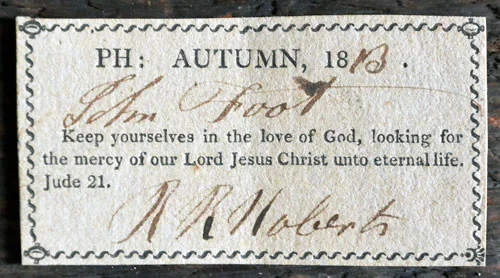 PH: AUTUMN, 1813.
John Foot
Keep yourselves in the love of God, looking for
the mercy of our Lord Jesus Christ unto eternal life.
Jude 21.
R R Roberts